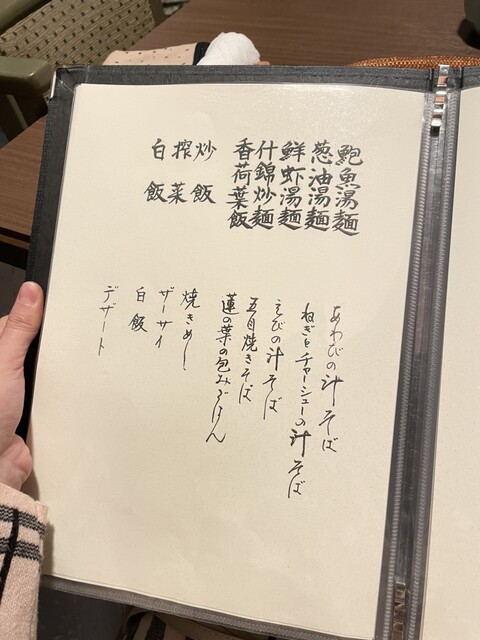 鮑魚湯麺
葱油湯麺
鮮虾湯麺
什錦炒麺
香荷葉飯
炒飯
搾菜
白飯
あわびの汁そば
ねぎとチャーシューの汁そば
えびの汁そば
五目焼きそば
蓮の葉の包みごはん
焼きめし
ザーサイ
白飯
デザート